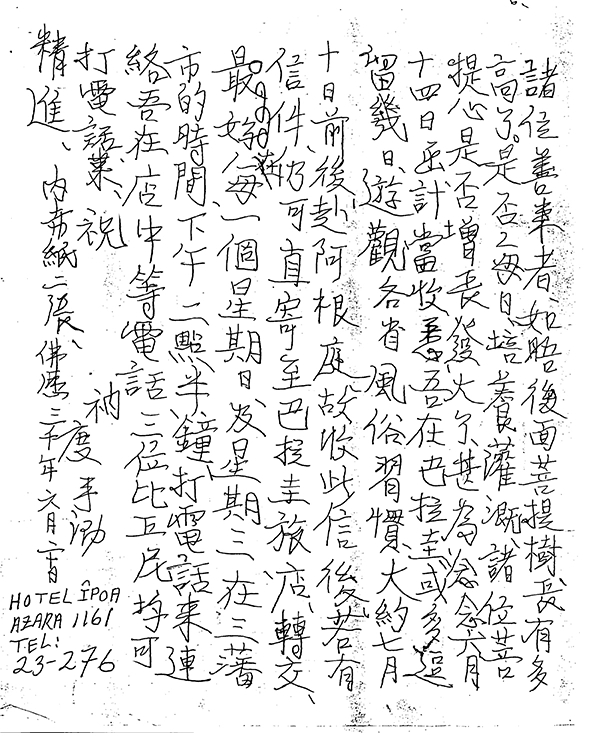 諸位善業者、如晤、後面菩提樹、長有多
高了。是否每日培養灌溉、諸位菩
提心是否增長發火了、甚為念念、六月
十四日函計當收悉、吾在巴拉圭或多逗
留幾日、遊觀各省風俗習慣、大約七月
十日前後赴阿根庭、故收此信後若有
信件仍可直寄至巴拉圭旅店轉交、
最好每一個星期日及星期三在三藩
市的時間、下午二點半鐘、打電話來連
絡、吾在店中等電話、三位比丘尼掙可
打電話業、祝
精進、 衲 度手泐
內布紙二張、佛歷三千年六月一日
HOTEL ÎPOA
AZARA 1161
TEL:
23-276